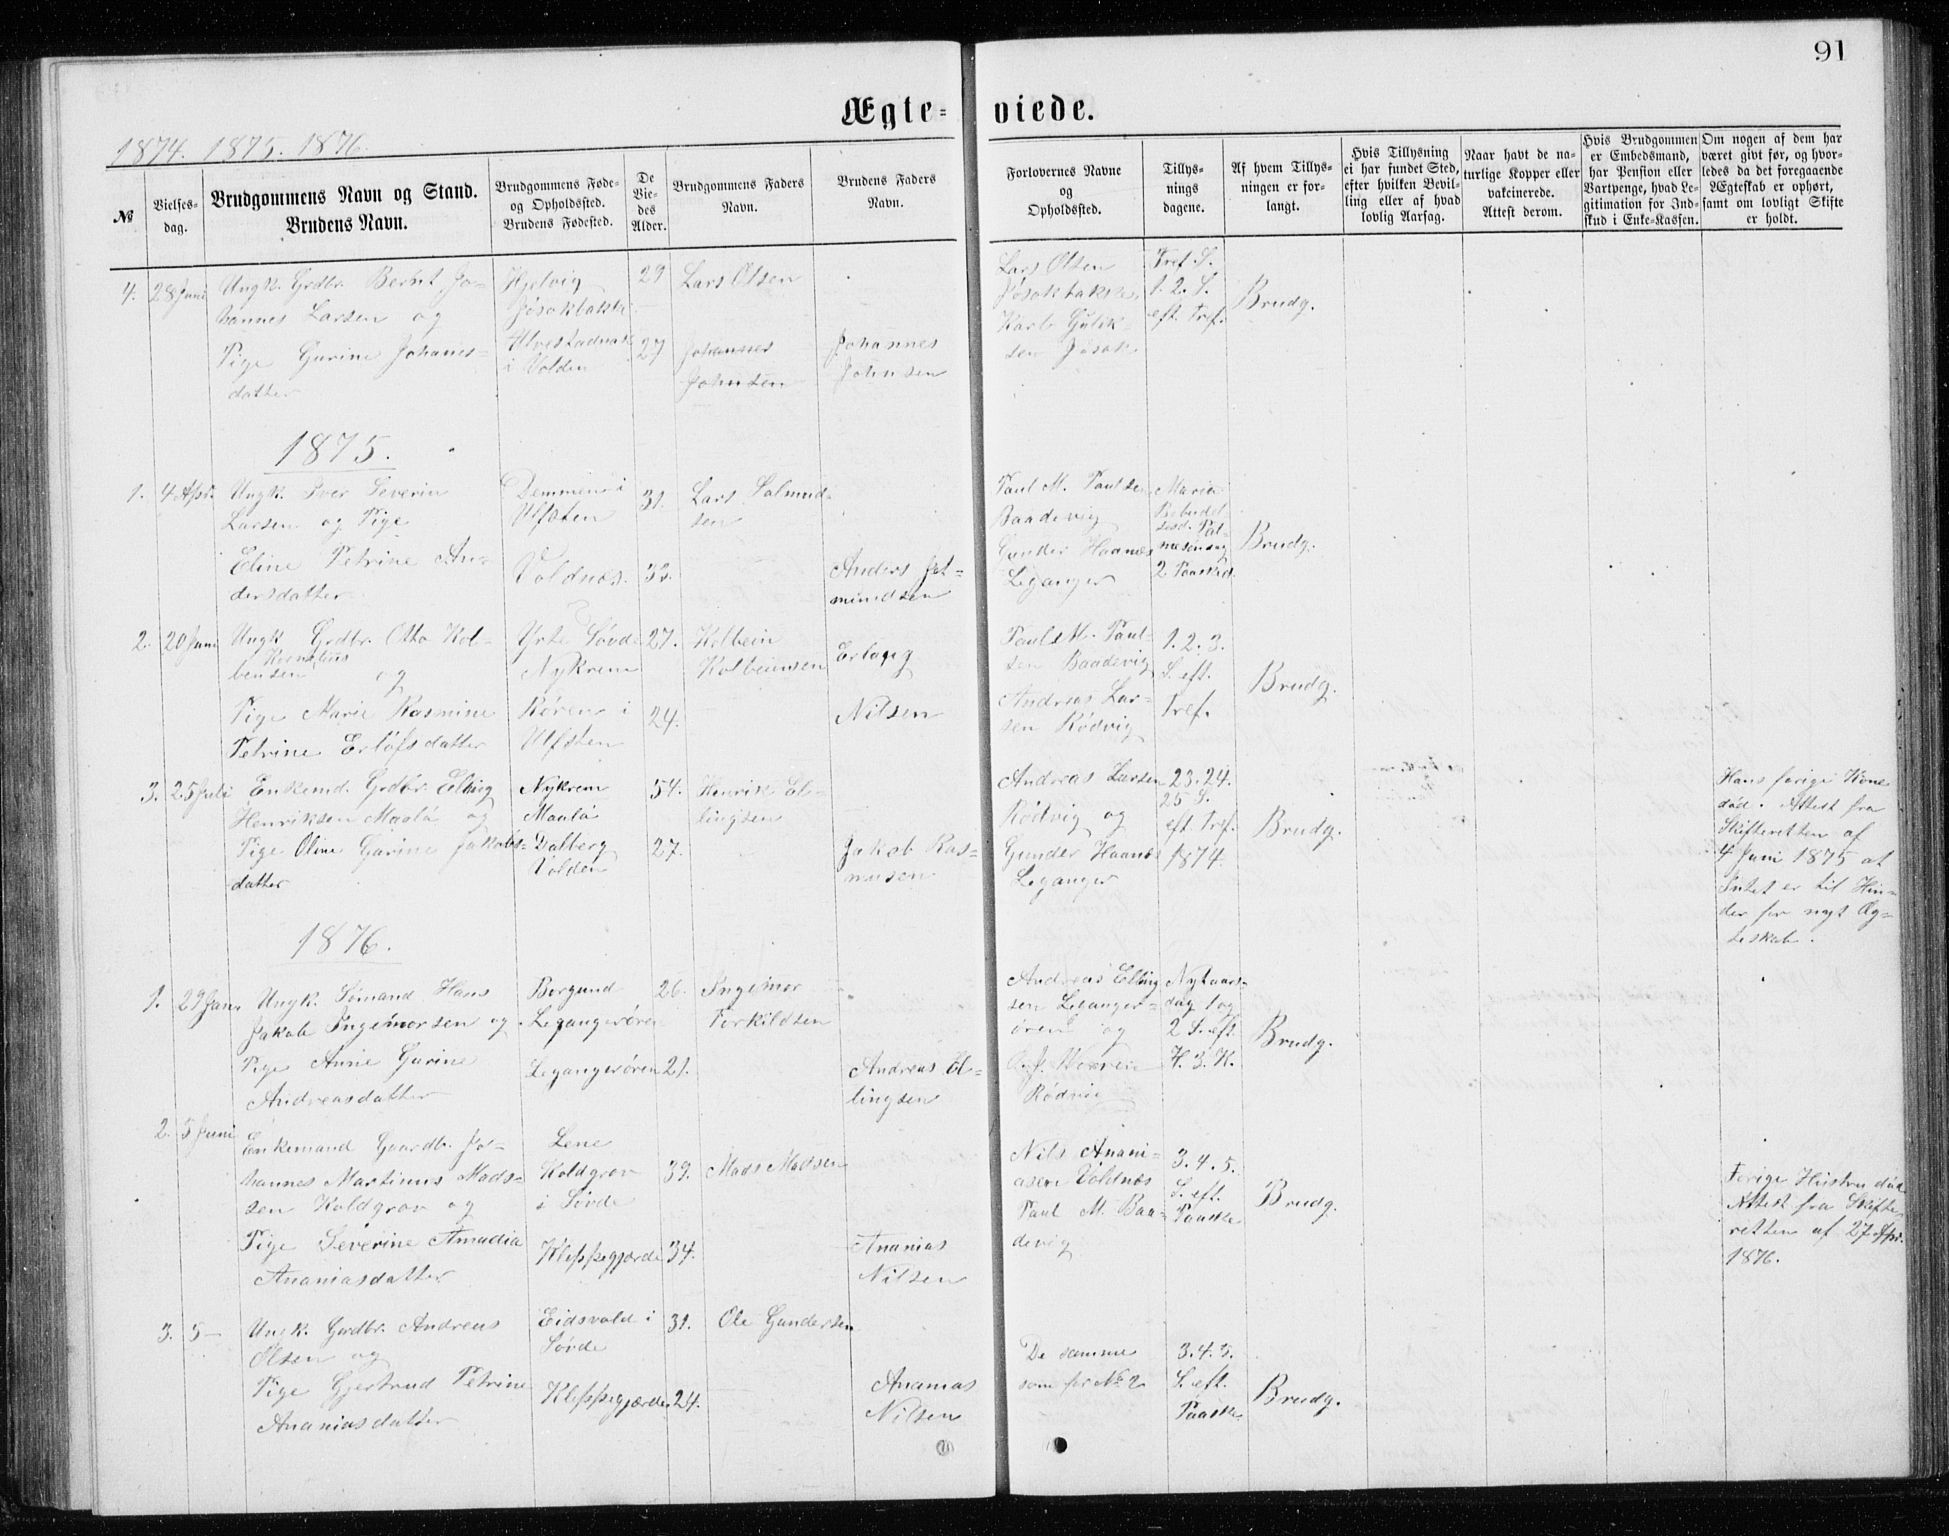 91
Ægte-viede.
1874. 1875. 1876.
№
Vielses-dag.
Brudgommens Navn og Stand.
Brudens Navn.
Brudgommens Føde-
og Opholdssted.
Brudens Fødested.
De
Vie-
des
Alder.
Brudgommens Faders
Navn.
Brudens Faders
Navn.
Forlovernes Navne
og
Opholdssted.
Tillys-
nings
dagene.
Af hvem Tillys-
ningen er for-
langt.
Hvis Tillysning
ei har fundet Sted,
efter hvilken Bevil-
ling eller af hvad
lovlig Aarsag.
Naar havt de na-
turlige Kopper eller
vakcinerede.
Attest derom.
Hvis Brudgommen
er Embedsmand,
har Pension eller
Vartpenge, hvad Le-
gitimation for Ind-
skud i Enke-Kassen.
Om nogen af dem har
været givt før, og hvor-
ledes da det foregaaende
Ægteskab er ophørt,
samt om lovligt Skifte
er holdt.
4. 28 Juni
Ungk. Grdbr. Bernt Jo-
hannes Larsen og
Pige Gurine Johanes-
datter
Hjelvig
Jøsokbakke
i Volden
29
27
Lars Olsen
Johannes
Johnsen
Johannes
Johnsen
Lars Olsen
Jøsokbakke
Karl Gulik-
sen Jøsok
Tref. S.
1. 2. S.
eft. Tref.
Brudg.
1875.
1. 4 Apr.
Ungk. Iver Severin
Larsen og Pige
Eline Petrine An-
dersdatter
Demmen i
Ulfsten
Voldnes.
31.
33.
Lars Salmund-
sen
Anders Jet-
mundsen
Paul M. Paulsen
Baadevig
Gunder Haanes
Leganger
Maria
Bebudel
sesd. Pal-
mesøndag
2 Paasked.
Brudg.
2. 20 Juni
Ungk Grdbr. Otto Kol-
Kornelius
bensen og
Pige Marie Rasmine
Petrine Erlofsdatter
Yrte Søvde
Nykrem
Røren i
Ulfsten
27.
24.
Kolbein
Kolbeinsen
Nilsen
Paul M. Paul-
sen Baadevig
Andreas Lar-
sen Rødvig
1. 2. 3.
S. eft.
Tref.
Brudg.
3. 25 Juli
Enkemd. Grdbr. Elling
Henriksen Maalø og
Pige Oline Gurine Jakobs-
datter
Nykrem
Maalø
Dalberg
Volden
54.
27.
Henrik El-
lingsen
Jakob Ras-
musen
Andreas Larsen
Rødvig og
Gunder Haanes
Leganger
23. 24.
25 S.
eft. Tref.
1874.
Brudg.
Hans forige Kone
død. Attest fra
Skifteretten af
4 Juni 1875 at
Intet er til Hin-
der for nyt Æg-
teskab.
1876.
1. 29 Jan.
Ungk. Sømand Hans
Jakob Ingemorsen og
Pige Anne Gurine
Andreasdatter
Borgund
Legangerøren
Legangerøren
26.
21.
Ingemor
Torkildsen
Andreas El-
lingsen
Andreas Elling
sen Leganger-
øren og
Rødvig
Nytaars-
dag 1 og
2 S. eft.
H. 3. K.
Brudg.
2. 5 Juni
Enkemand Gaardbr. Jo-
hannes Martinus Mads-
sen Koldgrov og
Pige Severine Amadia
Ananiasdatter
Lene
Koldgrov
i Søvde
Kleppegjærde
39.
34.
Mads Madsen
Ananias
Nilsen
Nils Anani-
asen Voldnes
Paul M. Baa-
devig
3. 4. 5.
S. eft.
Paaske
Brudg.
Forige Hustru død
Attest fra Skifte-
retten af 27 Apr.
1876.
3. 5 —
Ungk. Grdbr. Andreas
Olsen og
Pige Gjertrud Petrine
Ananiasdatter
Eidsvold i
Søvde
Kleppegjærde
31.
24.
Ole Gundersen
Ananias
Nilsen
De samme
som for № 2
3. 4. 5.
S. eft.
Paaske
Brudg.